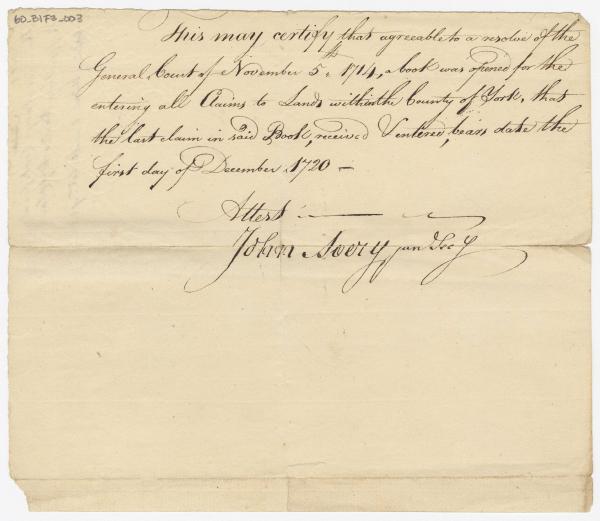 60_3173_003
This may certify that agreeable to a resolve of the
General Court of November 5th, 1714, a book was opened for the
entering all Claims to Lands within the County of York, that
the last claim in said Book, received & entered, bears date the
first day of December 1720 —
Attest
John Avery jun Secy